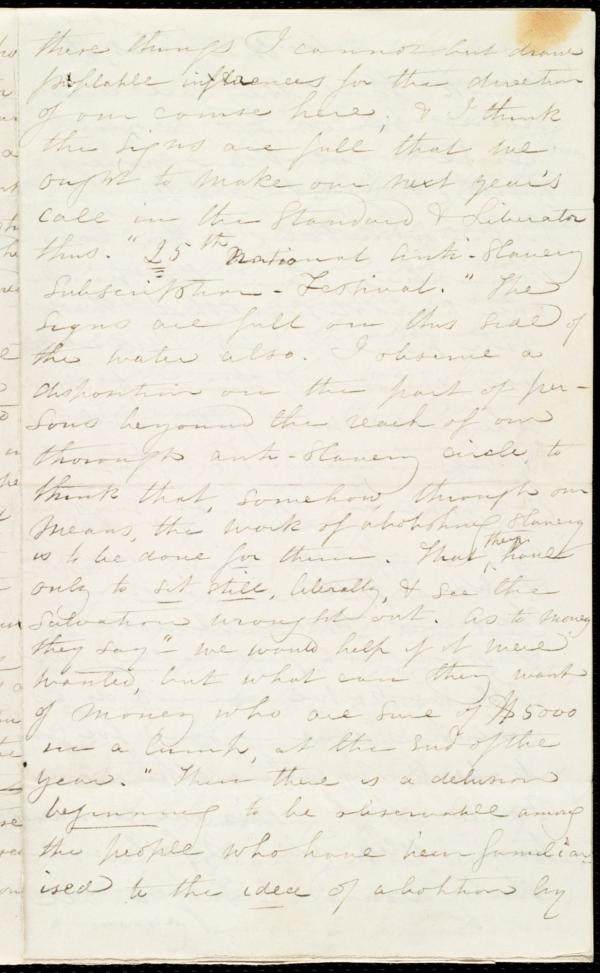 these things I cannot but draw
profitable influences for the direction
of our course here; & I think
the signs are full that we
ought to make our next year's
call in the Standard & Liberator
thus. "25th National Anti-Slavery
Subscription-Festival." The
signs are full on this side of
the water also. I observe a
disposition on the part of per-
sons beyond the reach of our
thorough anti-slavery circle, to
think that, somehow, through our
means, the work of abolishing slavery
is to be done for them. That they have
only to sit still, literally, & see the
salvation wrought out. As to money
they say "we would help if it were
wanted, but what can they want
of money who are sure of $5000
in a lump, at the end of the
year." Then there is a delusion
beginning to be observable among
the people who have been familiar-
ised to the idea of abolition by